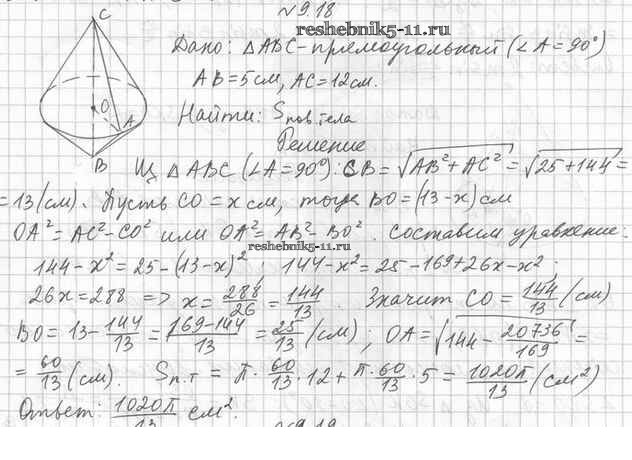 №9.18
reshebnik5-11.ru
C
Дано: △ABC - прямоугольный (∠A = 90°)
AB = 5 см, AC = 12 см.
O
A
Найти: Sпов.тела
Решение
B
Из △ABC (∠A = 90°): CB = √(AB² + AC²) = √(25 + 144) =
= 13 (см). Пусть CO = x см, тогда BO = (13 - x) см
OA² = AC² - CO² или OA² = AB² - BO². Составим уравнение:
reshebnik5-11.ru
144 - x² = 25 - (13 - x)²; 144 - x² = 25 - 169 + 26x - x²;
26x = 288 => x = 288/26 = 144/13. Значит CO = 144/13 (см)
BO = 13 - 144/13 = (169 - 144)/13 = 25/13 (см); OA = √(144 - 20736/169) =
= 60/13 (см). Sп.т = π · 60/13 · 12 + π · 60/13 · 5 = 1020π/13 (см²)
Ответ: 1020π/13 см².
№9.19